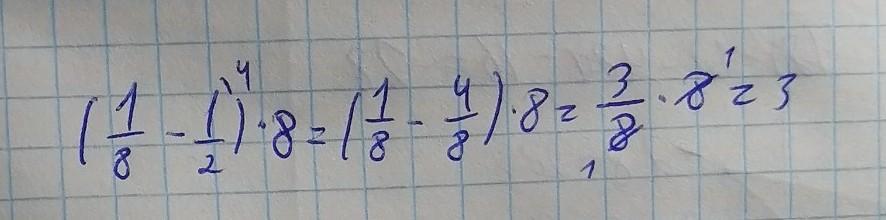 (1/8 - 1/2⁴) · 8 = (1/8 - 4/8) · 8 = 3/8 · 8 = 3
1 1